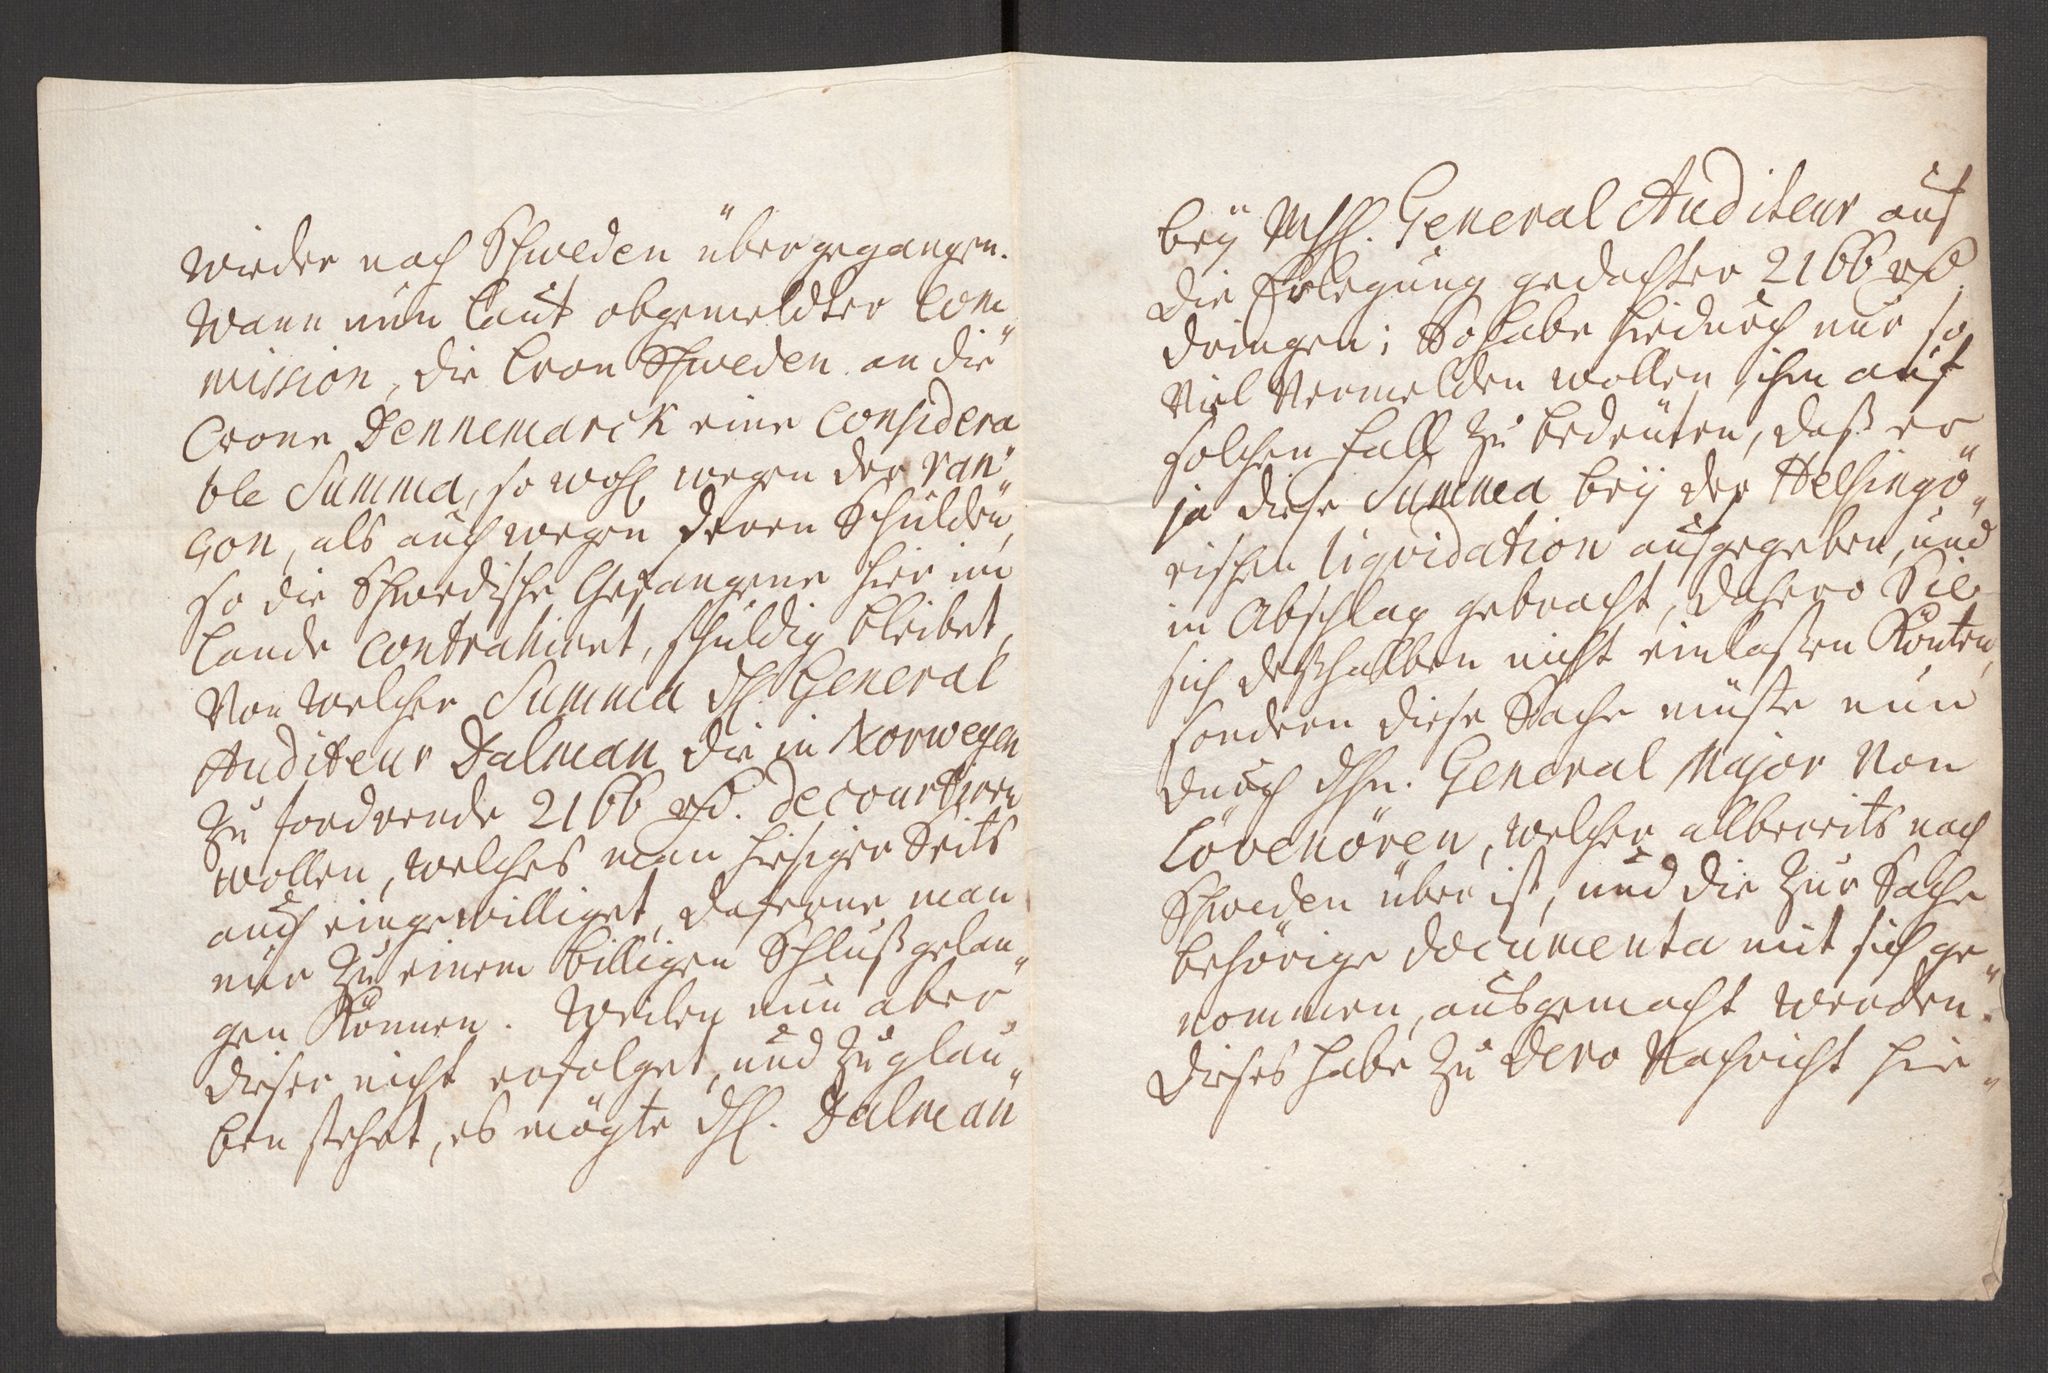 wieder nach Schweden übergegangen.
Wann nun laut obgemeldter Com
mission, die Cron Schweden an die
Crone Dennemarck eine considera
ble Summa, so wohl wegen der ran„
çon, als auch wegen deren Schulden,
so die Schwedische Gefangene hier im
Lande contrahiret, schuldig bleibet,
Von welcher Summa dH. General
Auditeur Dalman die in Norwegen
zu fordrende 2166 rd. decourtiren
wollen, welches man hiesiger Seits
auch eingewilliget, daferne man
nur zu einem billigen Schluß gelan„
gen können. Weilen nun aber
dieser nicht erfolget, und zu glau„
ben stehet, es mögte dH. Dalman
beÿ General Auditeur auf
die Erlegung gedachter 2166 rd
dringen; So habe hiedurch nur so
viel vermelden wollen ihm auf
solchen fall zu bedeuten, daß er
ja diese Summa beÿ der Helsingö„
rischen liqvidation ausgegeben, und
in Abschlag gebracht, dahero Sie
sich deßhalben nicht einlaßen könten,
sondern diese Sache müste nun
durch dHn. General Major von
Lövenören, welcher allbereits nach
Schweden über ist, und die zur Sache
behörige documenta mit sich ge„
nommen, ausgemacht werden.
Dieses habe zu Dero Nachricht hie„